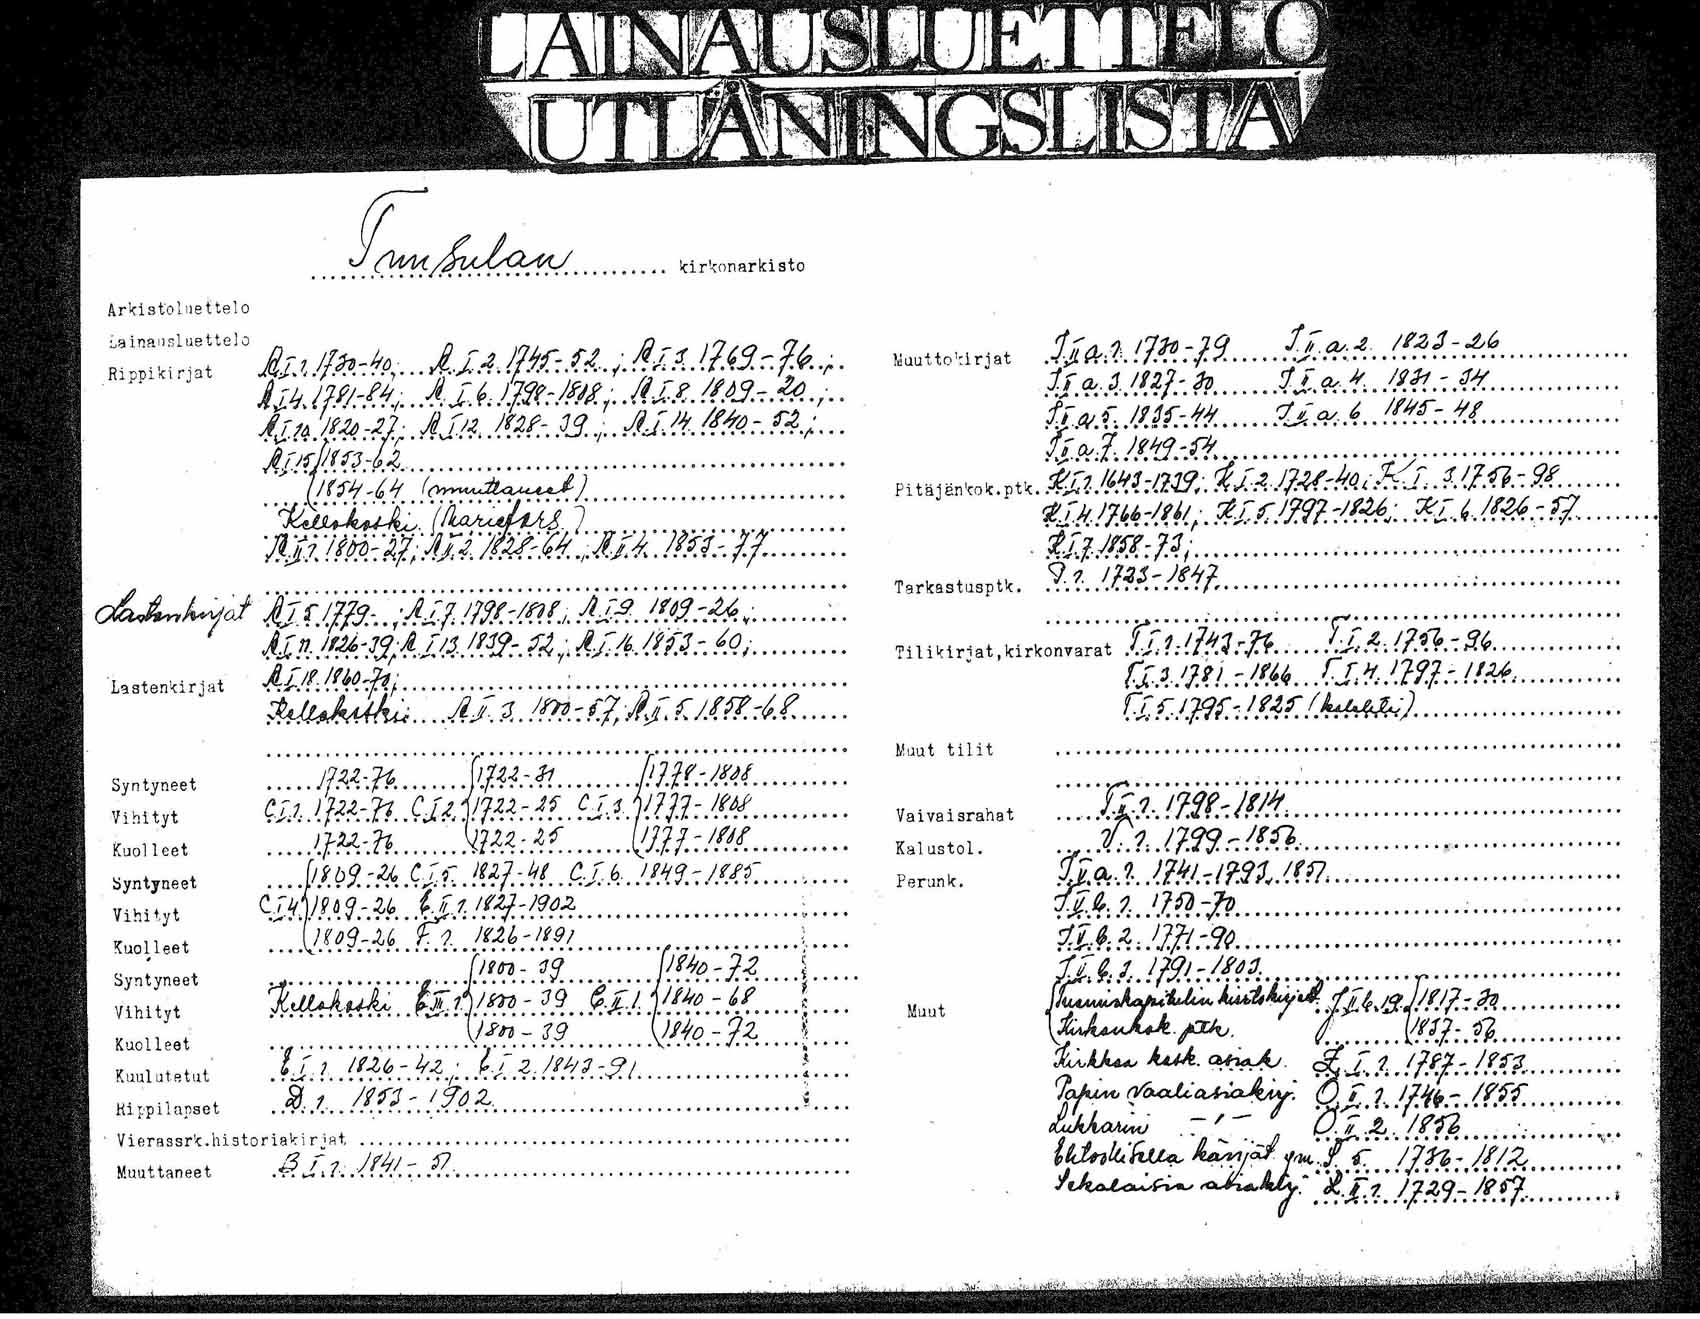 LAINAUSLUETTELO
UTLÅNINGSLISTA
Tuusulan kirkonarkisto
Arkistoluettelo
Lainausluettelo
Rippikirjat A I 1. 1730-40; A I 2. 1745-52; A I 3. 1769-76;
A I 4. 1781-84; A I 6. 1798-1808; A I 8. 1809-20;
A I 10. 1820-27; A I 12. 1828-39; A I 14. 1840-52;
A I 15 1853-62
1854-64 (muuttaneet)
Kellokoski (Mariefors)
A II 1. 1800-27; A II 2. 1828-64; A II 4. 1853-77
Lastenkirjat A I 5. 1779- ; A I 7. 1798-1808; A I 9. 1809-26;
A I 11. 1826-39; A I 13. 1839-52; A I 16. 1853-60;
Lastenkirjat A I 18. 1860-70;
Kellokoski A II 3. 1800-57; A II 5. 1858-68
Syntyneet 1722-76 1722-31 1778-1808
Vihityt C I 1. 1722-76 C I 2. 1722-25 C I 3. 1777-1808
Kuolleet 1722-76 1722-25 1777-1808
Syntyneet 1809-26 C I 5. 1827-48 C I 6. 1849-1885
Vihityt C I 4. 1809-26 E II 1. 1827-1902
Kuolleet 1809-26 F. 1. 1826-1891
Syntyneet 1800-39 1840-72
Vihityt Kellokoski 1800-39 C. II. 1. 1840-68
Kuolleet 1800-39 1840-72
Kuulutetut E I 1. 1826-42; E I 2. 1843-91
Rippilapset D. 1. 1853-1902
Vierassrk.historiakirjat
Muuttaneet B I 1. 1841-51
Muuttokirjat J II a. 1. 1730-79 J II a. 2. 1823-26
J II a. 3. 1827-30 J II a. 4. 1831-34
J II a 5. 1835-44 J II a. 6. 1845-48
J II a 7. 1849-54
Pitäjänkok.ptk. K I 1. 1643-1739; K I 2. 1728-40; K I. 3. 1756-98
K I 4. 1766-1861; K I 5. 1797-1826; K I. 6. 1826-57
K I 7. 1858-73;
Tarkastusptk. P. 1. 1723-1847
Tilikirjat,kirkonvarat T I 1. 1743-76 T. I. 2. 1756-96
T I 3. 1781-1866 T. I. 4. 1797-1826
T. I. 5. 1795-1825 (kolehti)
Muut tilit
Vaivaisrahat T II 1. 1798-1814
Kalustol. V. 1. 1799-1856
Perunk. J. V. a. 1. 1741-1793, 1851
J. V. b. 1. 1750-70
J. V. b. 2. 1771-90
J. V. b. 3. 1791-1803
Muut Tuomiokapitelin kiertokirjeet J II b. 19. 1817-30
Kirkonkok. ptk. 1837-56
Kirkkoa kosk. asiak. I. 1. 1787-1853
Papin vaaliasiakirj. O. II. 1. 1746-1855
Lukkarin -,- O. II. 2. 1856
Ehtoollisella käyjät ym. 5. 1736-1812
Sekalaisia asiakirj. II. 1. 1729-1857